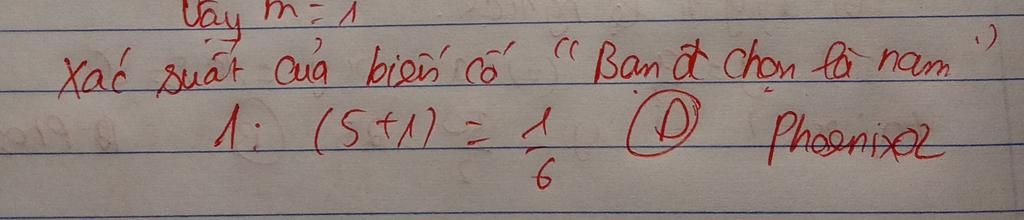 Vậy m = 1
Xác suất của biến cố "Bạn đt chọn là nam"
1: (5+1) = 1/6 (D) Phoenix02